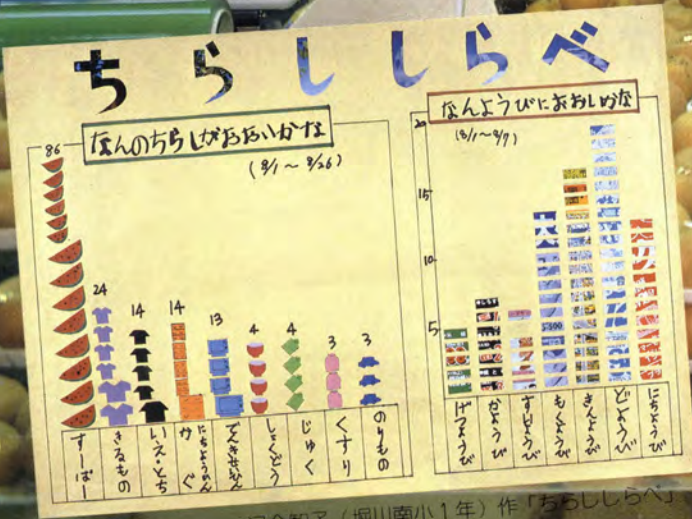 ちらししらべ
なんのちらしがおおいかな
(8/1～8/26)
86
24
14
14
13
4
4
3
3
すーぱー
きるもの
いえ・とち
にちようひん
かぐ
でんきせいひん
しょくどう
じゅく
くすり
のりもの
なんようびにおおいかな
(8/1～8/7)
20
15
10
5
げつようび
かようび
すいようび
もくようび
きんようび
どようび
にちようび
(堀川南小1年)作「ちらししらべ」